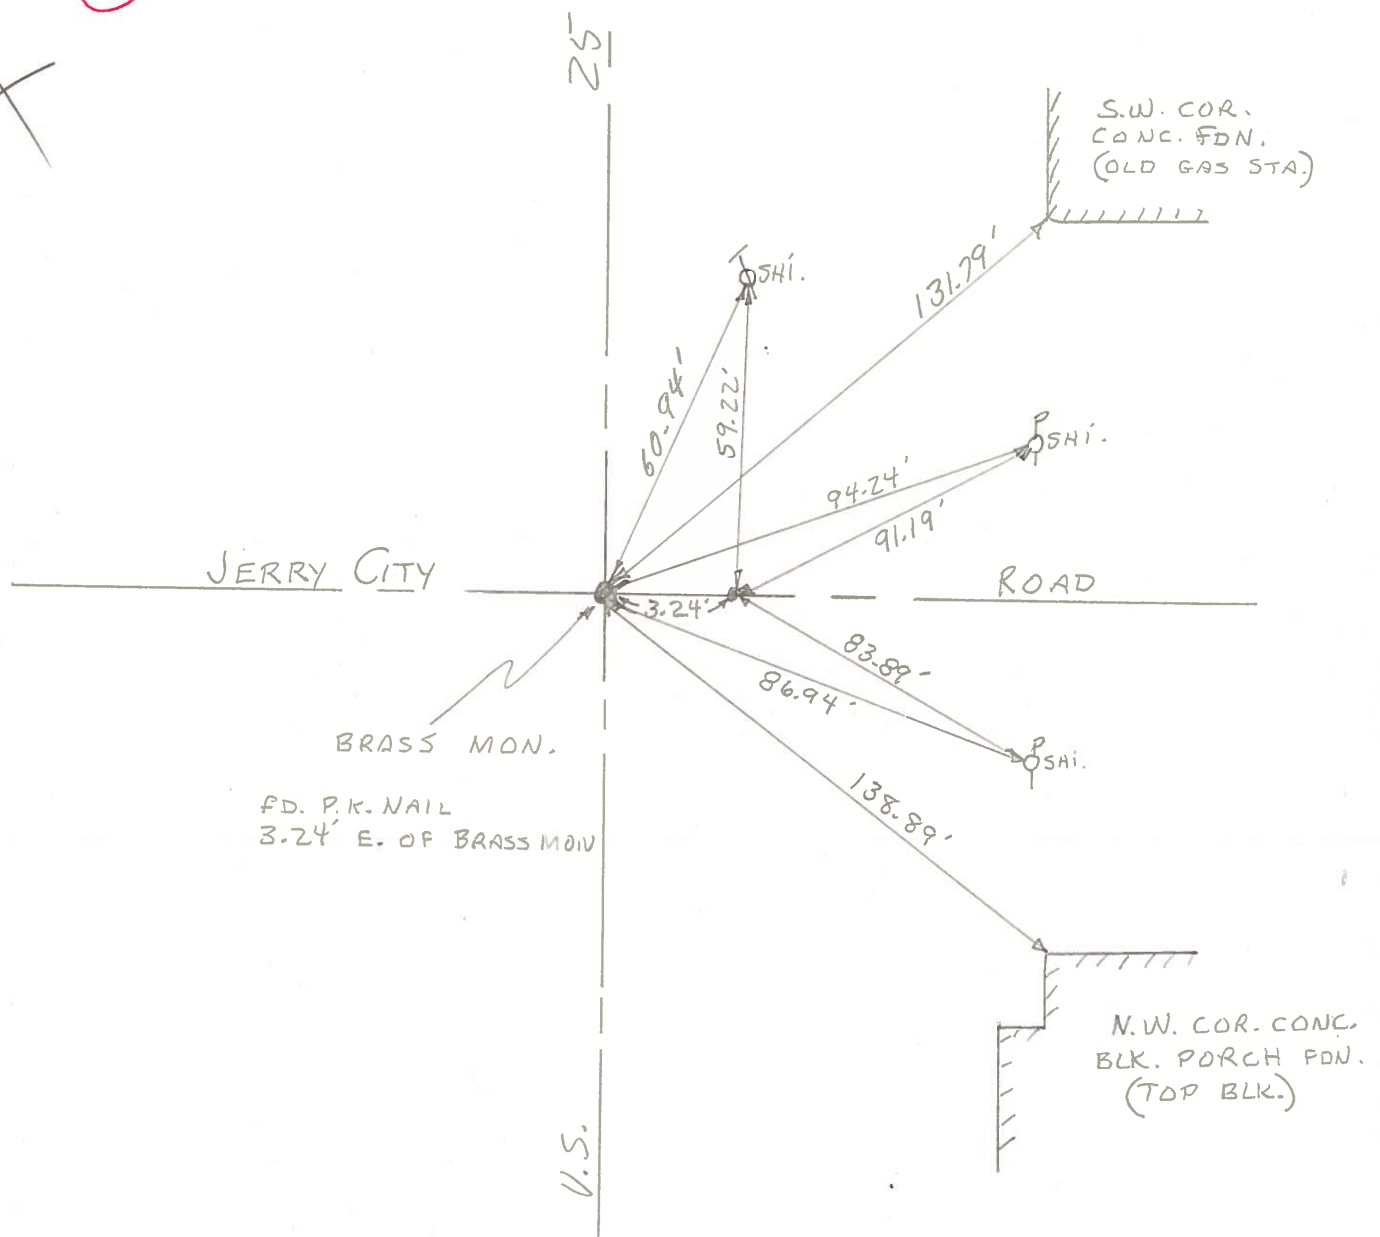 25
S.W. COR.
CONC. FDN.
(OLD GAS STA.)
T
SHI.
131.79'
60.94'
59.22'
P
SHI.
94.24'
91.19'
JERRY CITY
ROAD
3.24'
83.89'
86.94'
BRASS MON.
P
SHI.
FD. P.K. NAIL
3.24' E. OF BRASS MON
138.89'
N.W. COR. CONC.
BLK. PORCH FDN.
(TOP BLK.)
U.S.